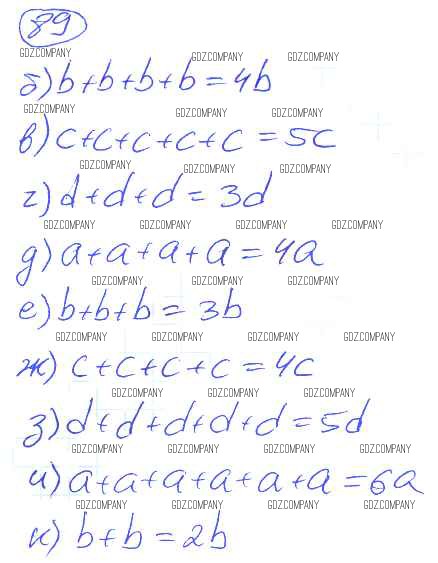 89
GDZ.COMPANY GDZ.COMPANY GDZ.COMPANY
б) b+b+b+b=4b
GDZ.COMPANY GDZ.COMPANY GDZ.COMPANY
в) c+c+c+c+c=5c
GDZ.COMPANY GDZ.COMPANY GDZ.COMPANY
г) d+d+d=3d
GDZ.COMPANY GDZ.COMPANY GDZ.COMPANY GDZ.COMPANY
д) a+a+a+a=4a
GDZ.COMPANY GDZ.COMPANY GDZ.COMPANY
е) b+b+b=3b
GDZ.COMPANY GDZ.COMPANY GDZ.COMPANY GDZ.COMPANY
ж) c+c+c+c=4c
GDZ.COMPANY GDZ.COMPANY GDZ.COMPANY
з) d+d+d+d+d=5d
GDZ.COMPANY GDZ.COMPANY GDZ.COMPANY GDZ.COMPANY
и) a+a+a+a+a+a=6a
GDZ.COMPANY GDZ.COMPANY GDZ.COMPANY GDZ.COMPANY
к) b+b=2b